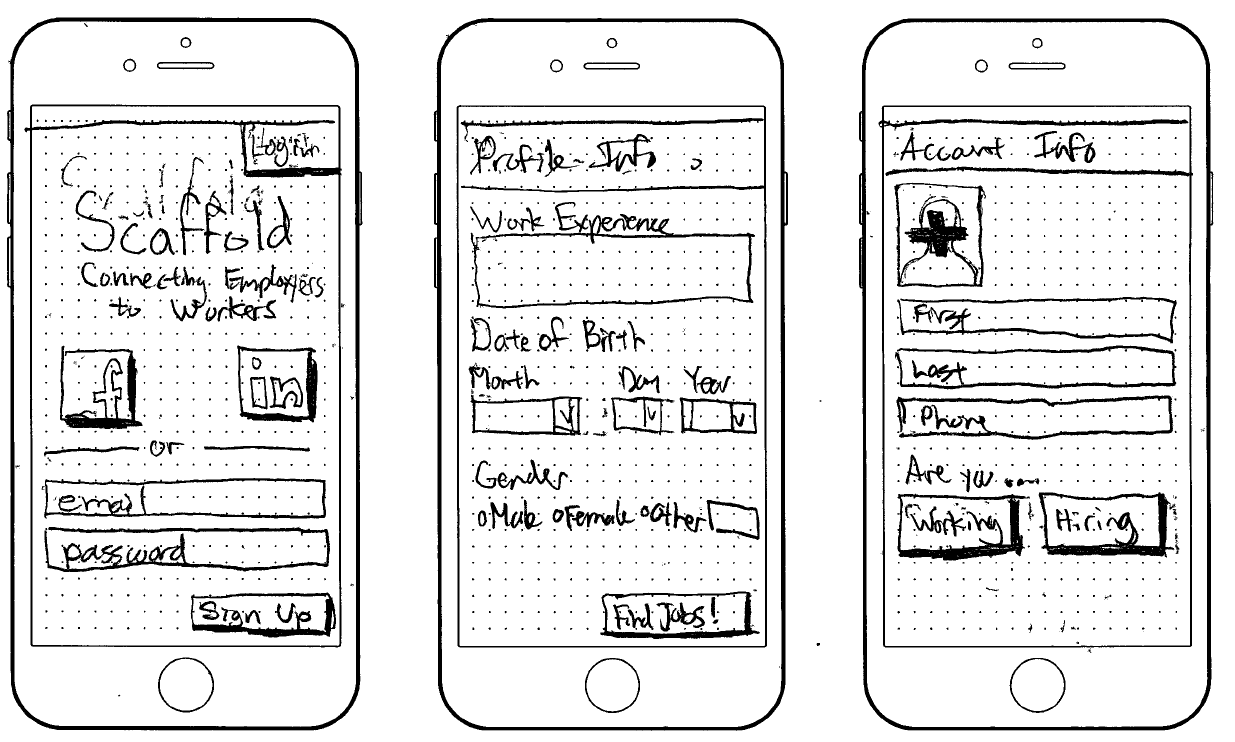 Log in
Scaffold
Connecting Employers
to Workers
f
in
or
email
password
Sign Up
Profile Info
Work Experience
Date of Birth
Month Day Year
Gender
Male Female Other
Find Jobs!
Account Info
First
Last
Phone
Are you ....
Working Hiring